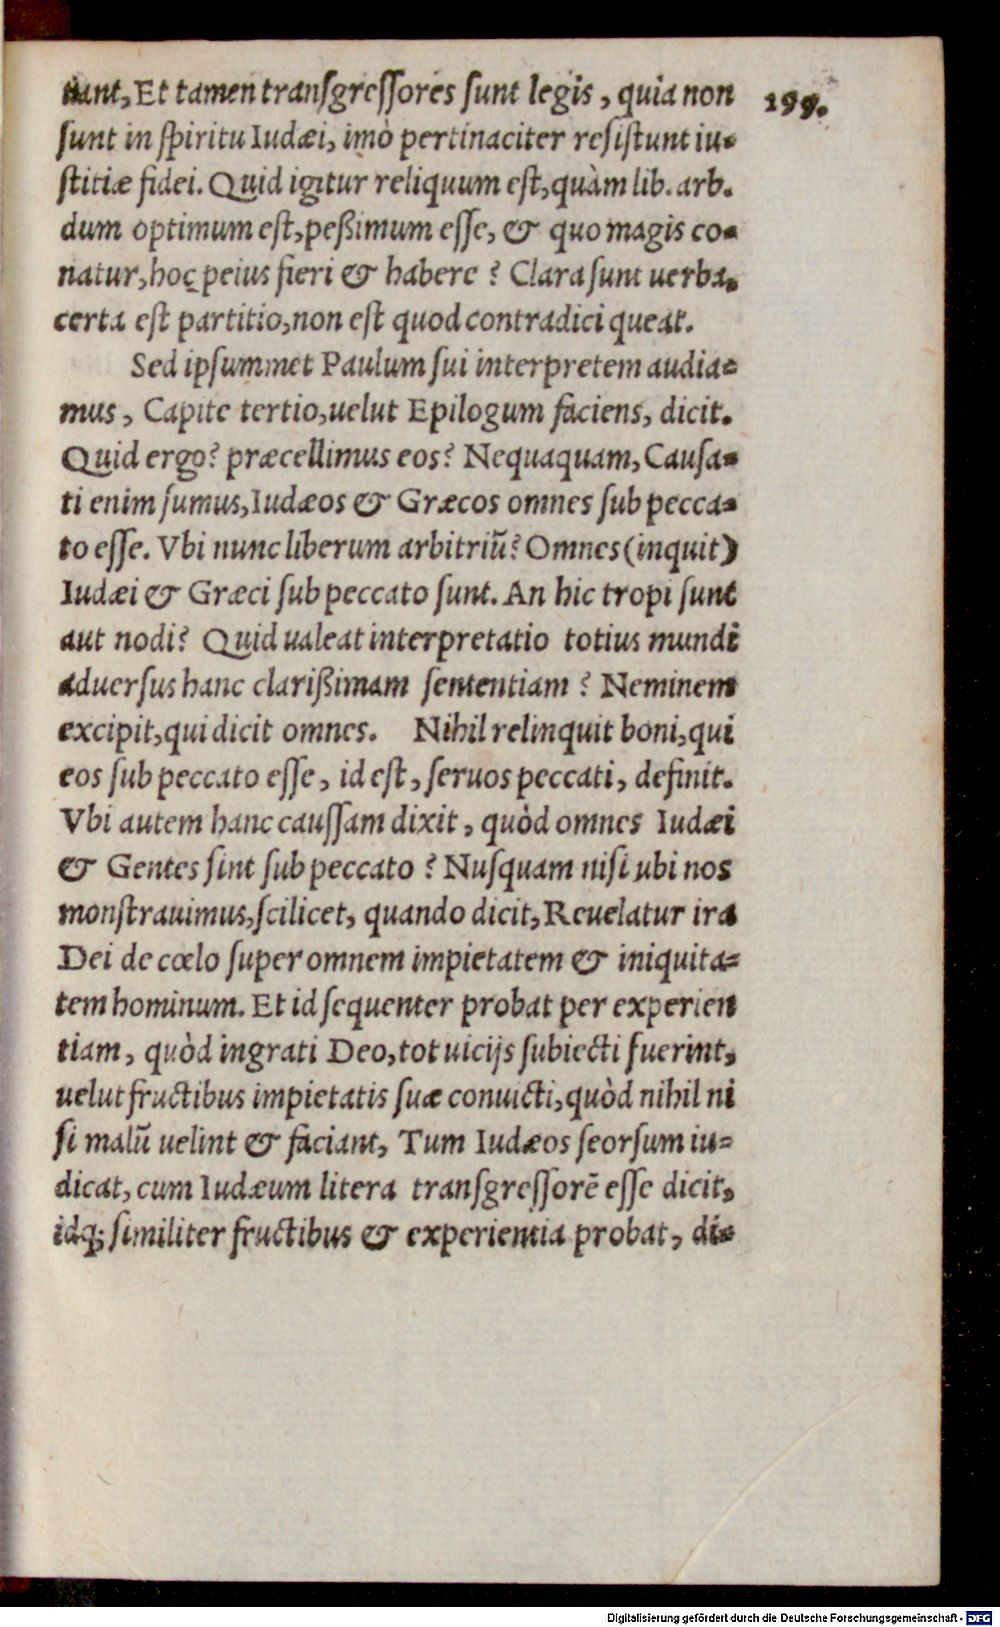 uant, Et tamen transgressores sunt legis, quia non
199.
sunt in spiritu Iudæi, imò pertinaciter resistunt iu-
stitiæ fidei. Quid igitur reliquum est, quàm lib. arb.
dum optimum est, peßimum esse, & quo magis co-
natur, hoc peius fieri & habere? Clara sunt uerba,
certa est partitio, non est quod contradici queat.
Sed ipsummet Paulum sui interpretem audia-
mus, Capite tertio, uelut Epilogum faciens, dicit.
Quid ergo? præcellimus eos? Nequaquam, Causa-
ti enim sumus, Iudæos & Græcos omnes sub pecca-
to esse. Vbi nunc liberum arbitriũ? Omnes (inquit)
Iudæi & Græci sub peccato sunt. An hic tropi sunt
aut nodi? Quid ualeat interpretatio totius mundi
aduersus hanc clarißimam sententiam? Neminem
excipit, qui dicit omnes. Nihil relinquit boni, qui
eos sub peccato esse, id est, seruos peccati, definit.
Vbi autem hanc caussam dixit, quòd omnes Iudæi
& Gentes sint sub peccato? Nusquam nisi ubi nos
monstrauimus, scilicet, quando dicit, Reuelatur ira
Dei de cœlo super omnem impietatem & iniquita-
tem hominum. Et id sequenter probat per experien
tiam, quòd ingrati Deo, tot uicijs subiecti fuerint,
uelut fructibus impietatis suæ conuicti, quòd nihil ni
si malũ uelint & faciant, Tum Iudæos seorsum iu-
dicat, cum Iudæum litera transgressorẽ esse dicit,
idq; similiter fructibus & experientia probat, di-
Digitalisierung gefördert durch die Deutsche Forschungsgemeinschaft - DFG